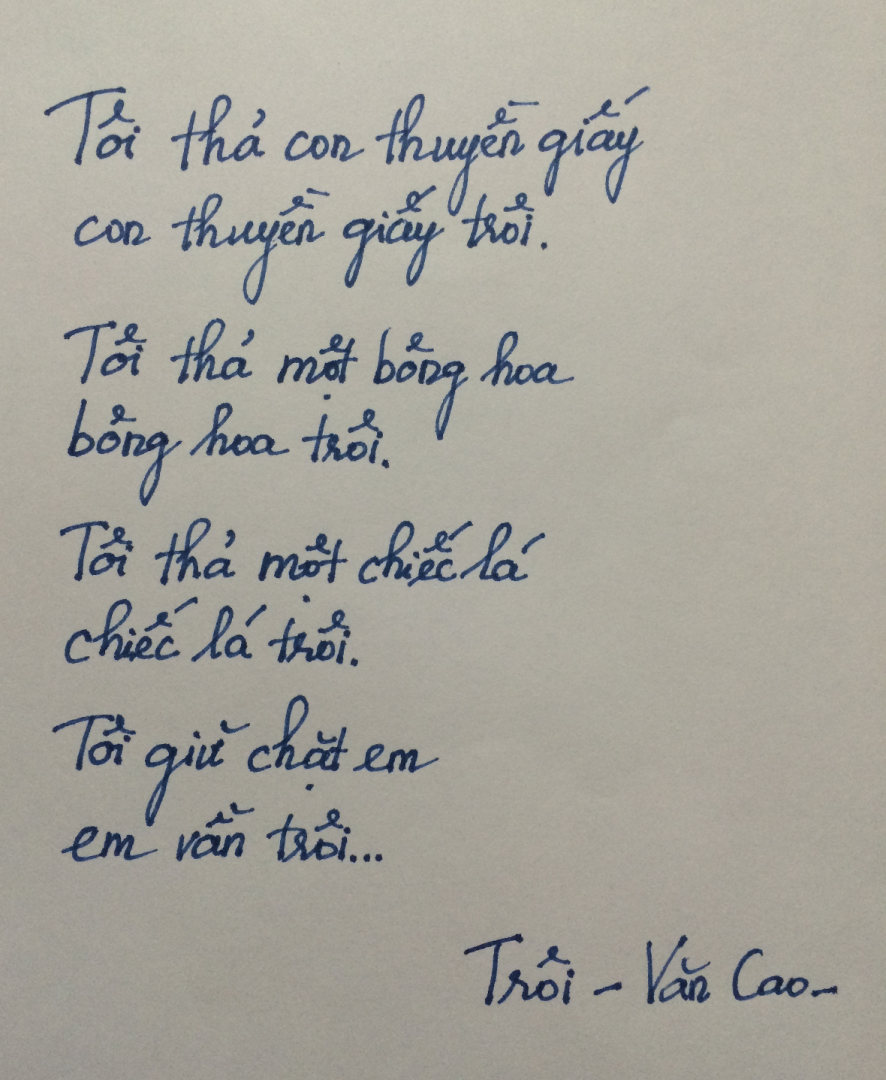 Tôi thả con thuyền giấy
con thuyền giấy trôi.
Tôi thả một bông hoa
bông hoa trôi.
Tôi thả một chiếc lá
chiếc lá trôi.
Tôi giữ chặt em
em vẫn trôi...
Trôi - Văn Cao -